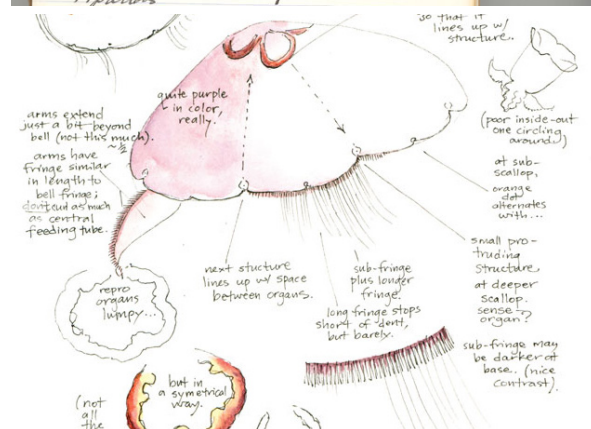 so that it
lines up w/
structure.
quite purple
in color,
really.
arms extend
just a bit beyond
bell (not this much).
arms have
fringe similar
in length to
bell fringe;
as much
as central
feeding tube.
(poor inside-out
one circling
around.)
at sub-
scallop,
orange
dot
alternates
with...
small pro-
truding
structure,
at deeper
scallop.
sense
organ?
next stucture
lines up w/ space
between organs.
sub-fringe
plus longer
fringe.
long fringe stops
short of dent,
but barely.
repro
organs
lumpy...
sub-fringe may
be darker at
base.. (nice
contrast).
but in
a symetrical
way.
(not
all
the